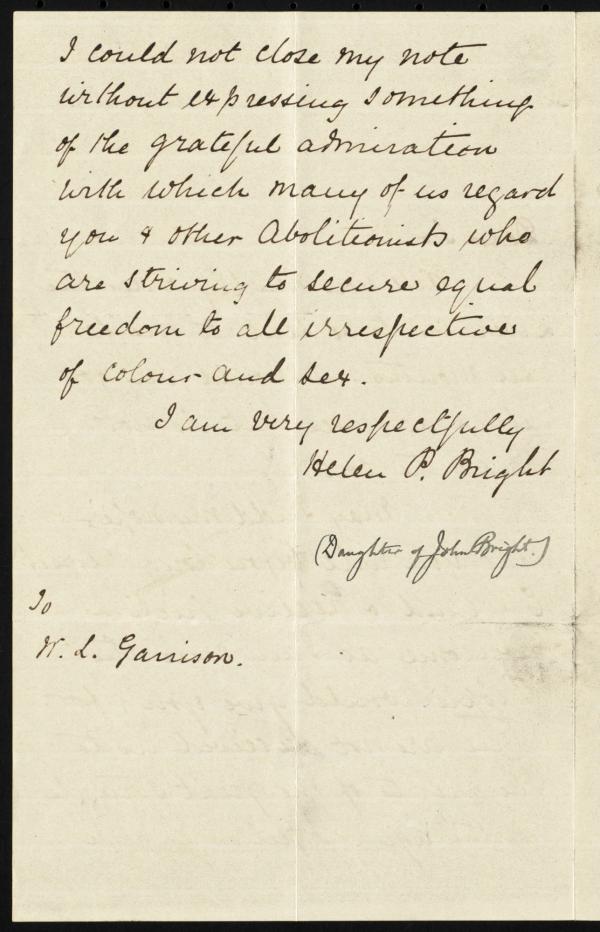 I could not close my note
without expressing something
of the grateful admiration
with which many of us regard
you & other Abolitionists who
are striving to secure equal
freedom to all irrespective
of colour and sex.
I am very respectfully
Helen P. Bright
(Daughter of John Bright.)
To
W. L. Garrison.